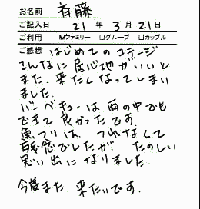 お名前 斉藤
ご記入日 21年 3月21日
ご利用 ☑ファミリー □グループ □カップル
ご感想 はじめてのコテージ
こんなに居心地がいいと
また、来たくなってしまい
ました。
バーベキューは雨の中でも
できて良かったです。
魚つりは、つれなくて
残念でしたが たのしい
思い出になりました。
今度また 来たいです。